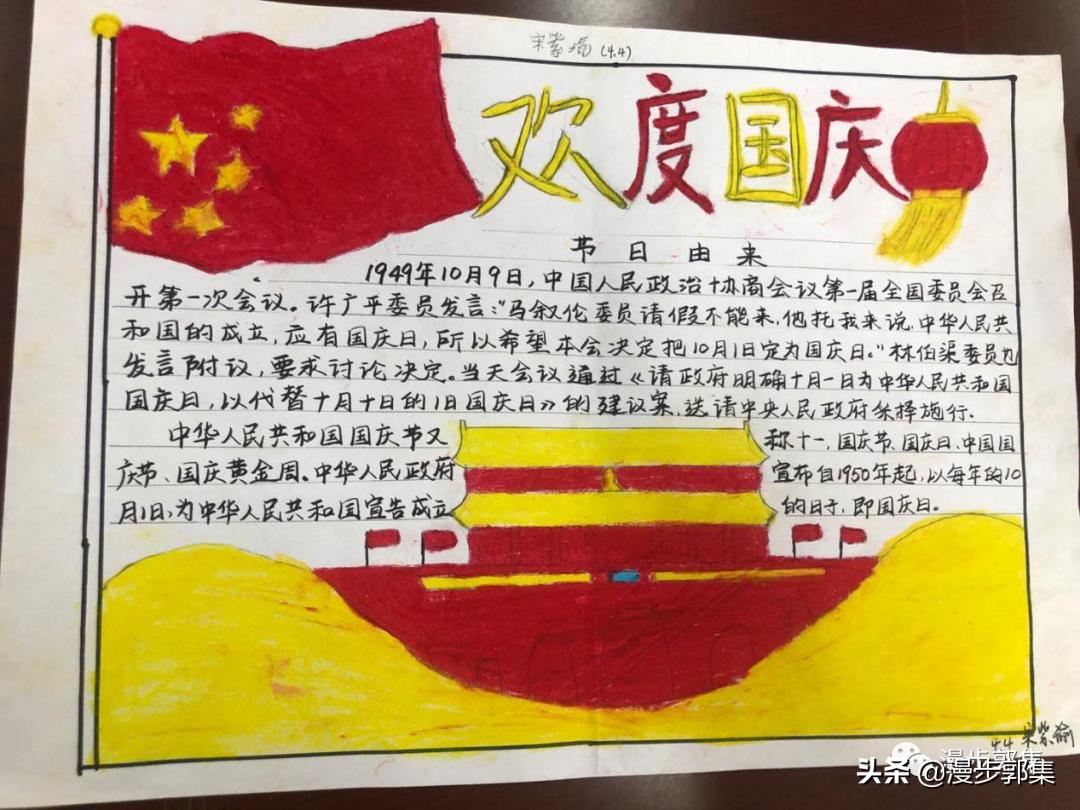 宋紫瑜 (4.4)
欢度国庆
节日由来
1949年10月9日,中国人民政治协商会议第一届全国委员会召
开第一次会议。许广平委员发言:"马叙伦委员请假不能来,他托我来说,中华人民共
和国的成立,应有国庆日,所以希望本会决定把10月1日定为国庆日。"林伯渠委员也
发言附议,要求讨论决定。当天会议通过《请政府明确十月一日为中华人民共和国
国庆日,以代替十月十日的旧国庆日》的建议案,送请中央人民政府采择施行.
中华人民共和国国庆节又称十一,国庆节、国庆日、中国国
庆节、国庆黄金周。中华人民政府宣布自1950年起,以每年的10
月1日,为中华人民共和国宣告成立的日子,即国庆日。
4.4 宋紫瑜
漫步郭集
头条 @漫步郭集